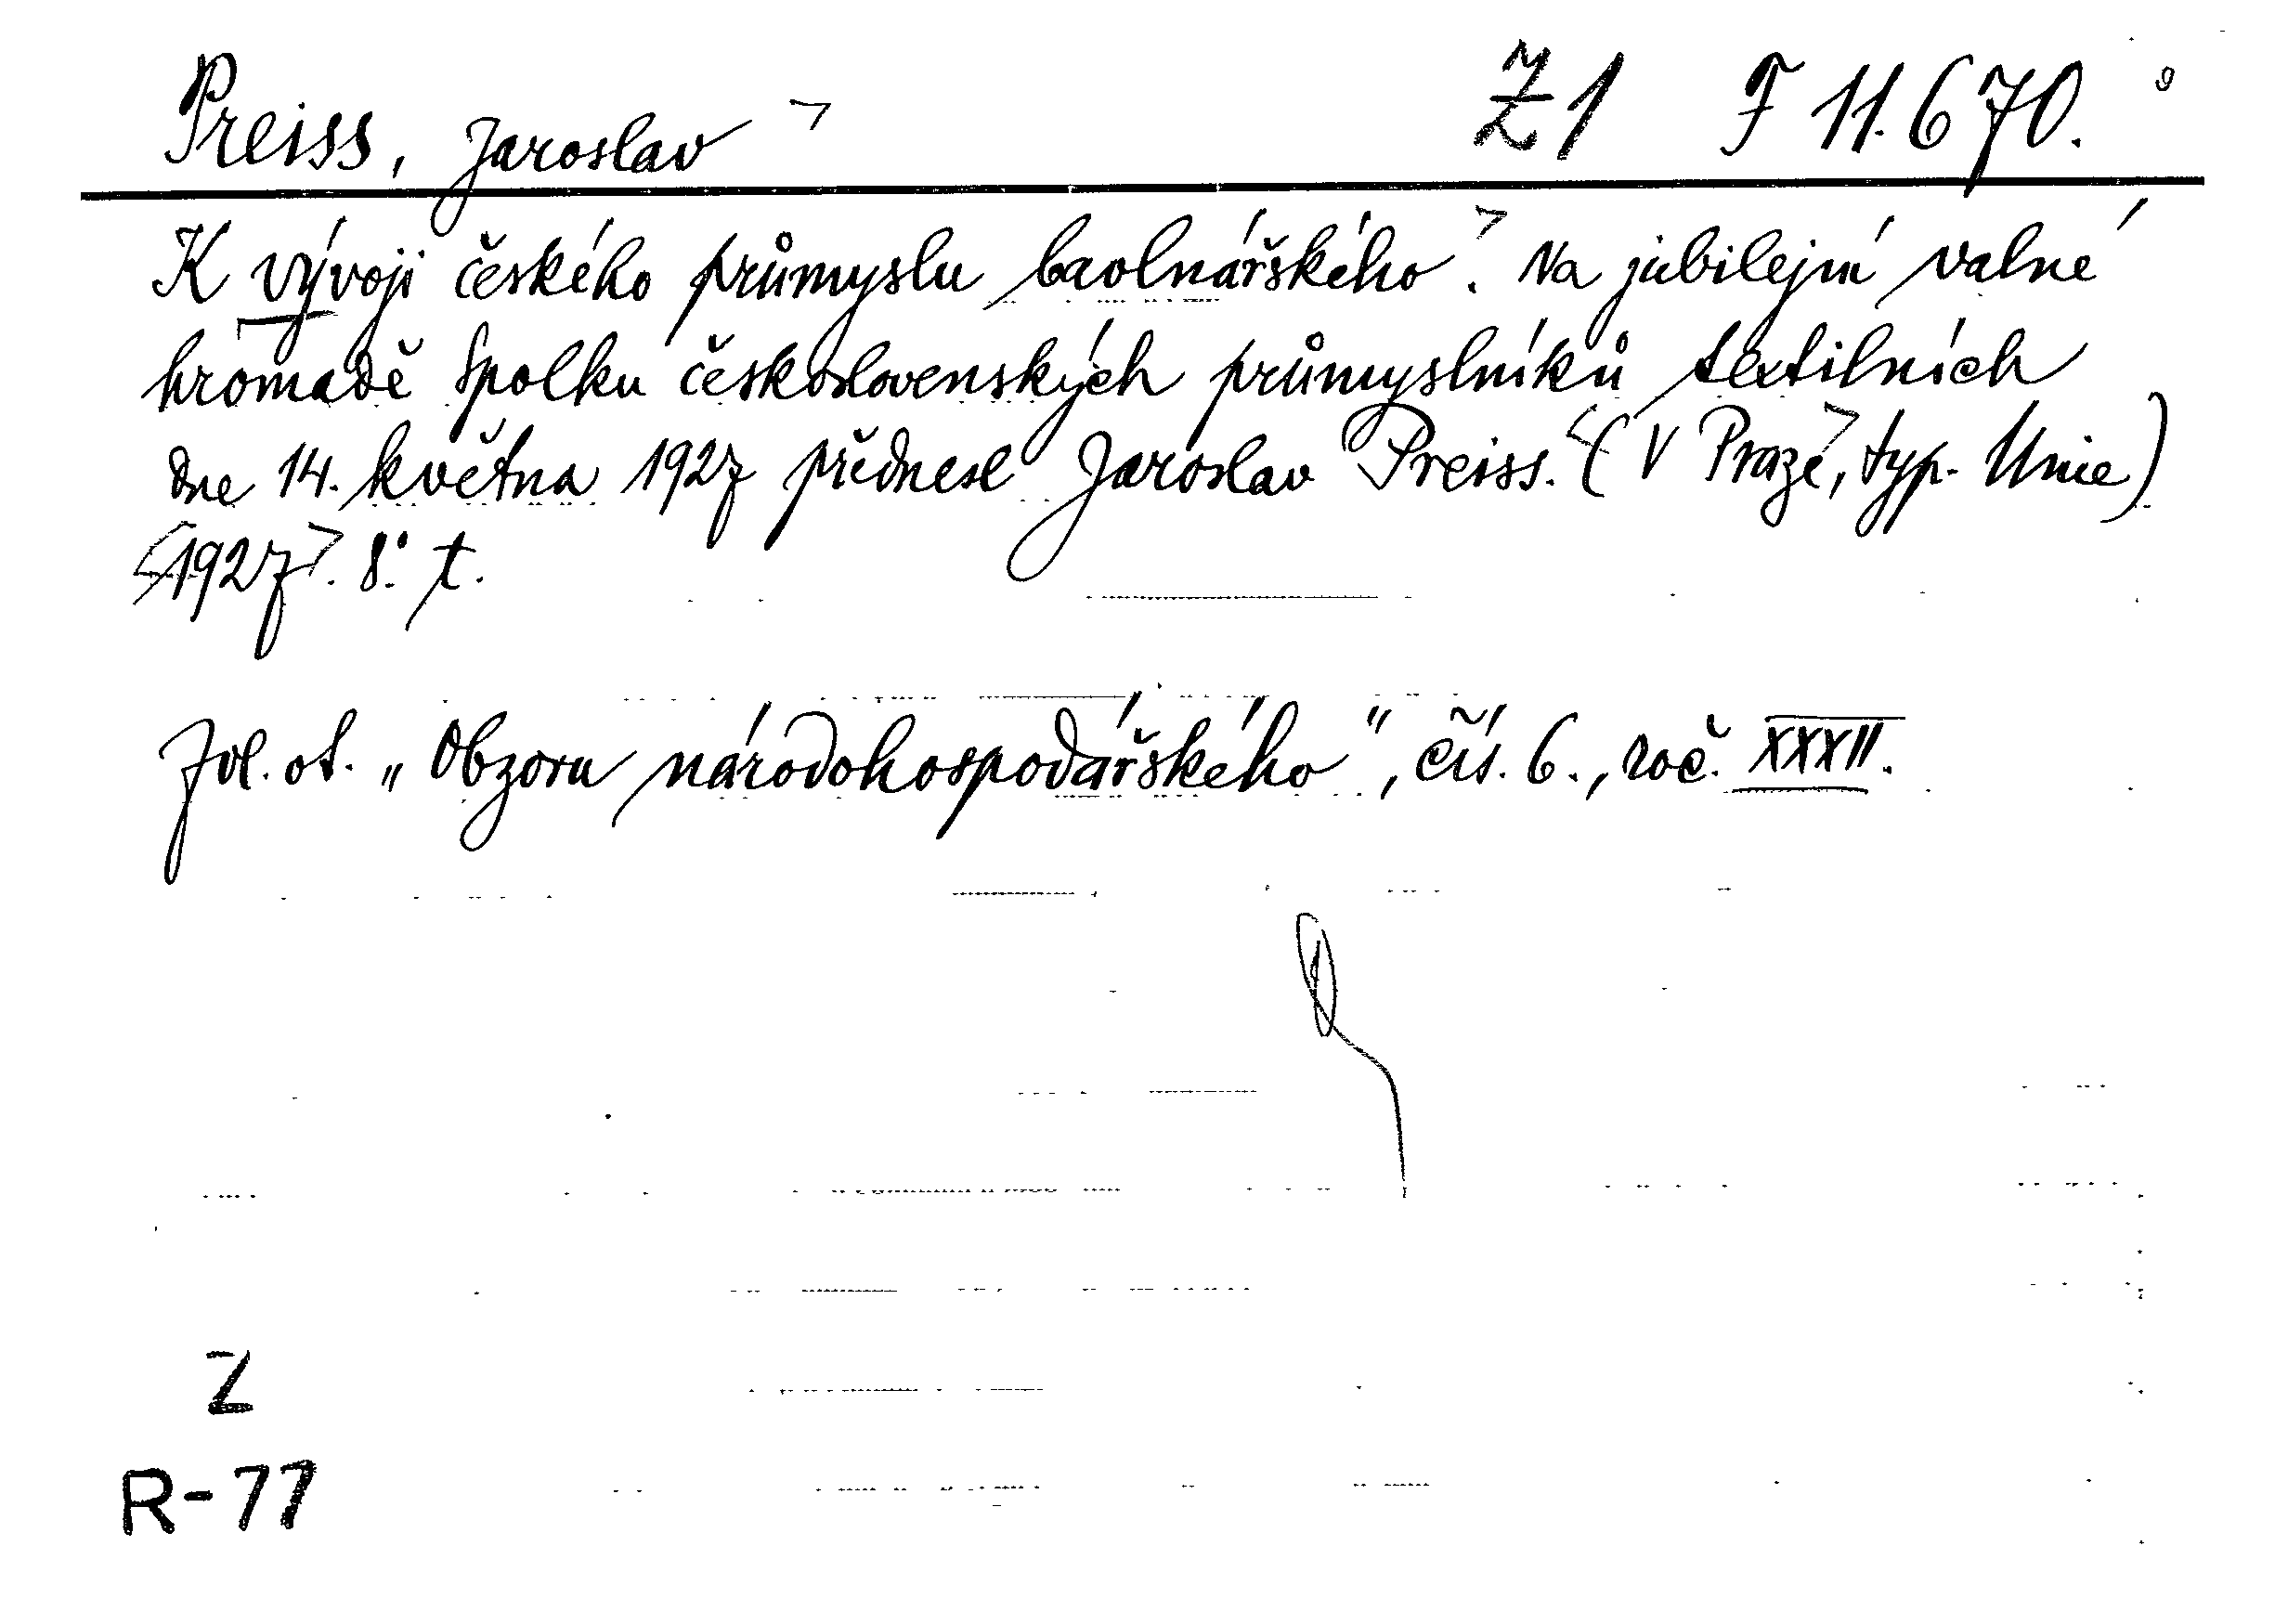 Preiss, Jaroslav > Z1 F 11.670.
K vývoji českého průmyslu bavlnářského.> Na jubilejní valné
hromadě Spolku československých průmyslníků textilních
dne 14. května 1927 přednesl Jaroslav Preiss. <(V Praze>, typ. Unie)
<1927>. 8°. t.
Zvl. ot. „Obzoru národohospodářského", čís. 6., roč. XXXII.
Z
R-77